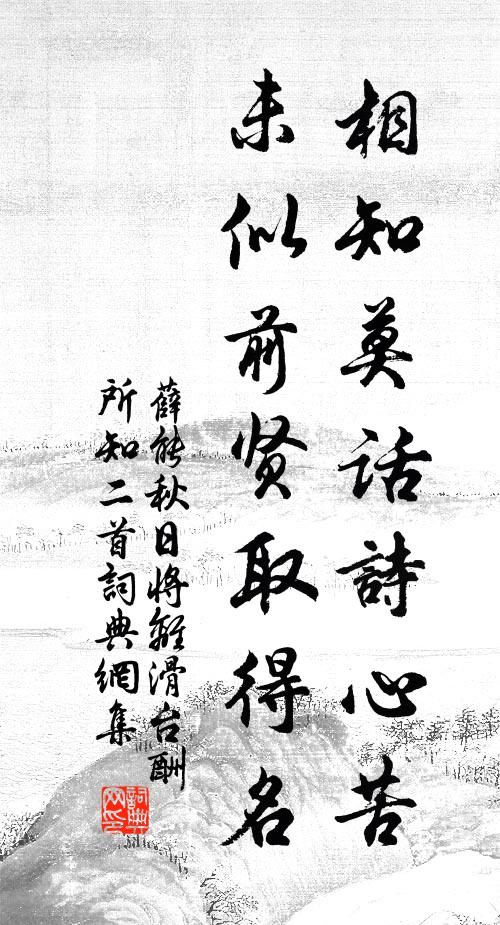 相知莫话詩心苦
未似前贤取得名
薛能秋日将離滑台酬
所知二首詞典網集